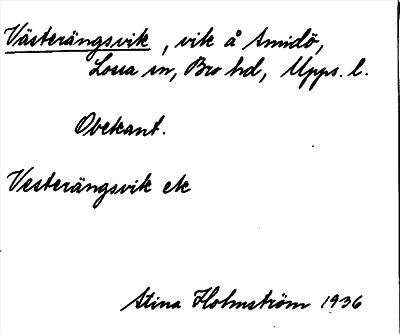 Västerängsvik, vik å Smidö,
Lossa sn, Bro hd, Upps. l.
Obekant.
Vesterängsvik ek
Stina Holmström 1936